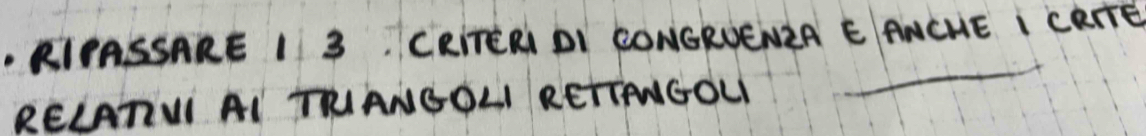 • RIPASSARE I 3 CRITERI DI CONGRUENZA E ANCHE I CRITE
RELATIVI AI TRIANGOLI RETTANGOLI